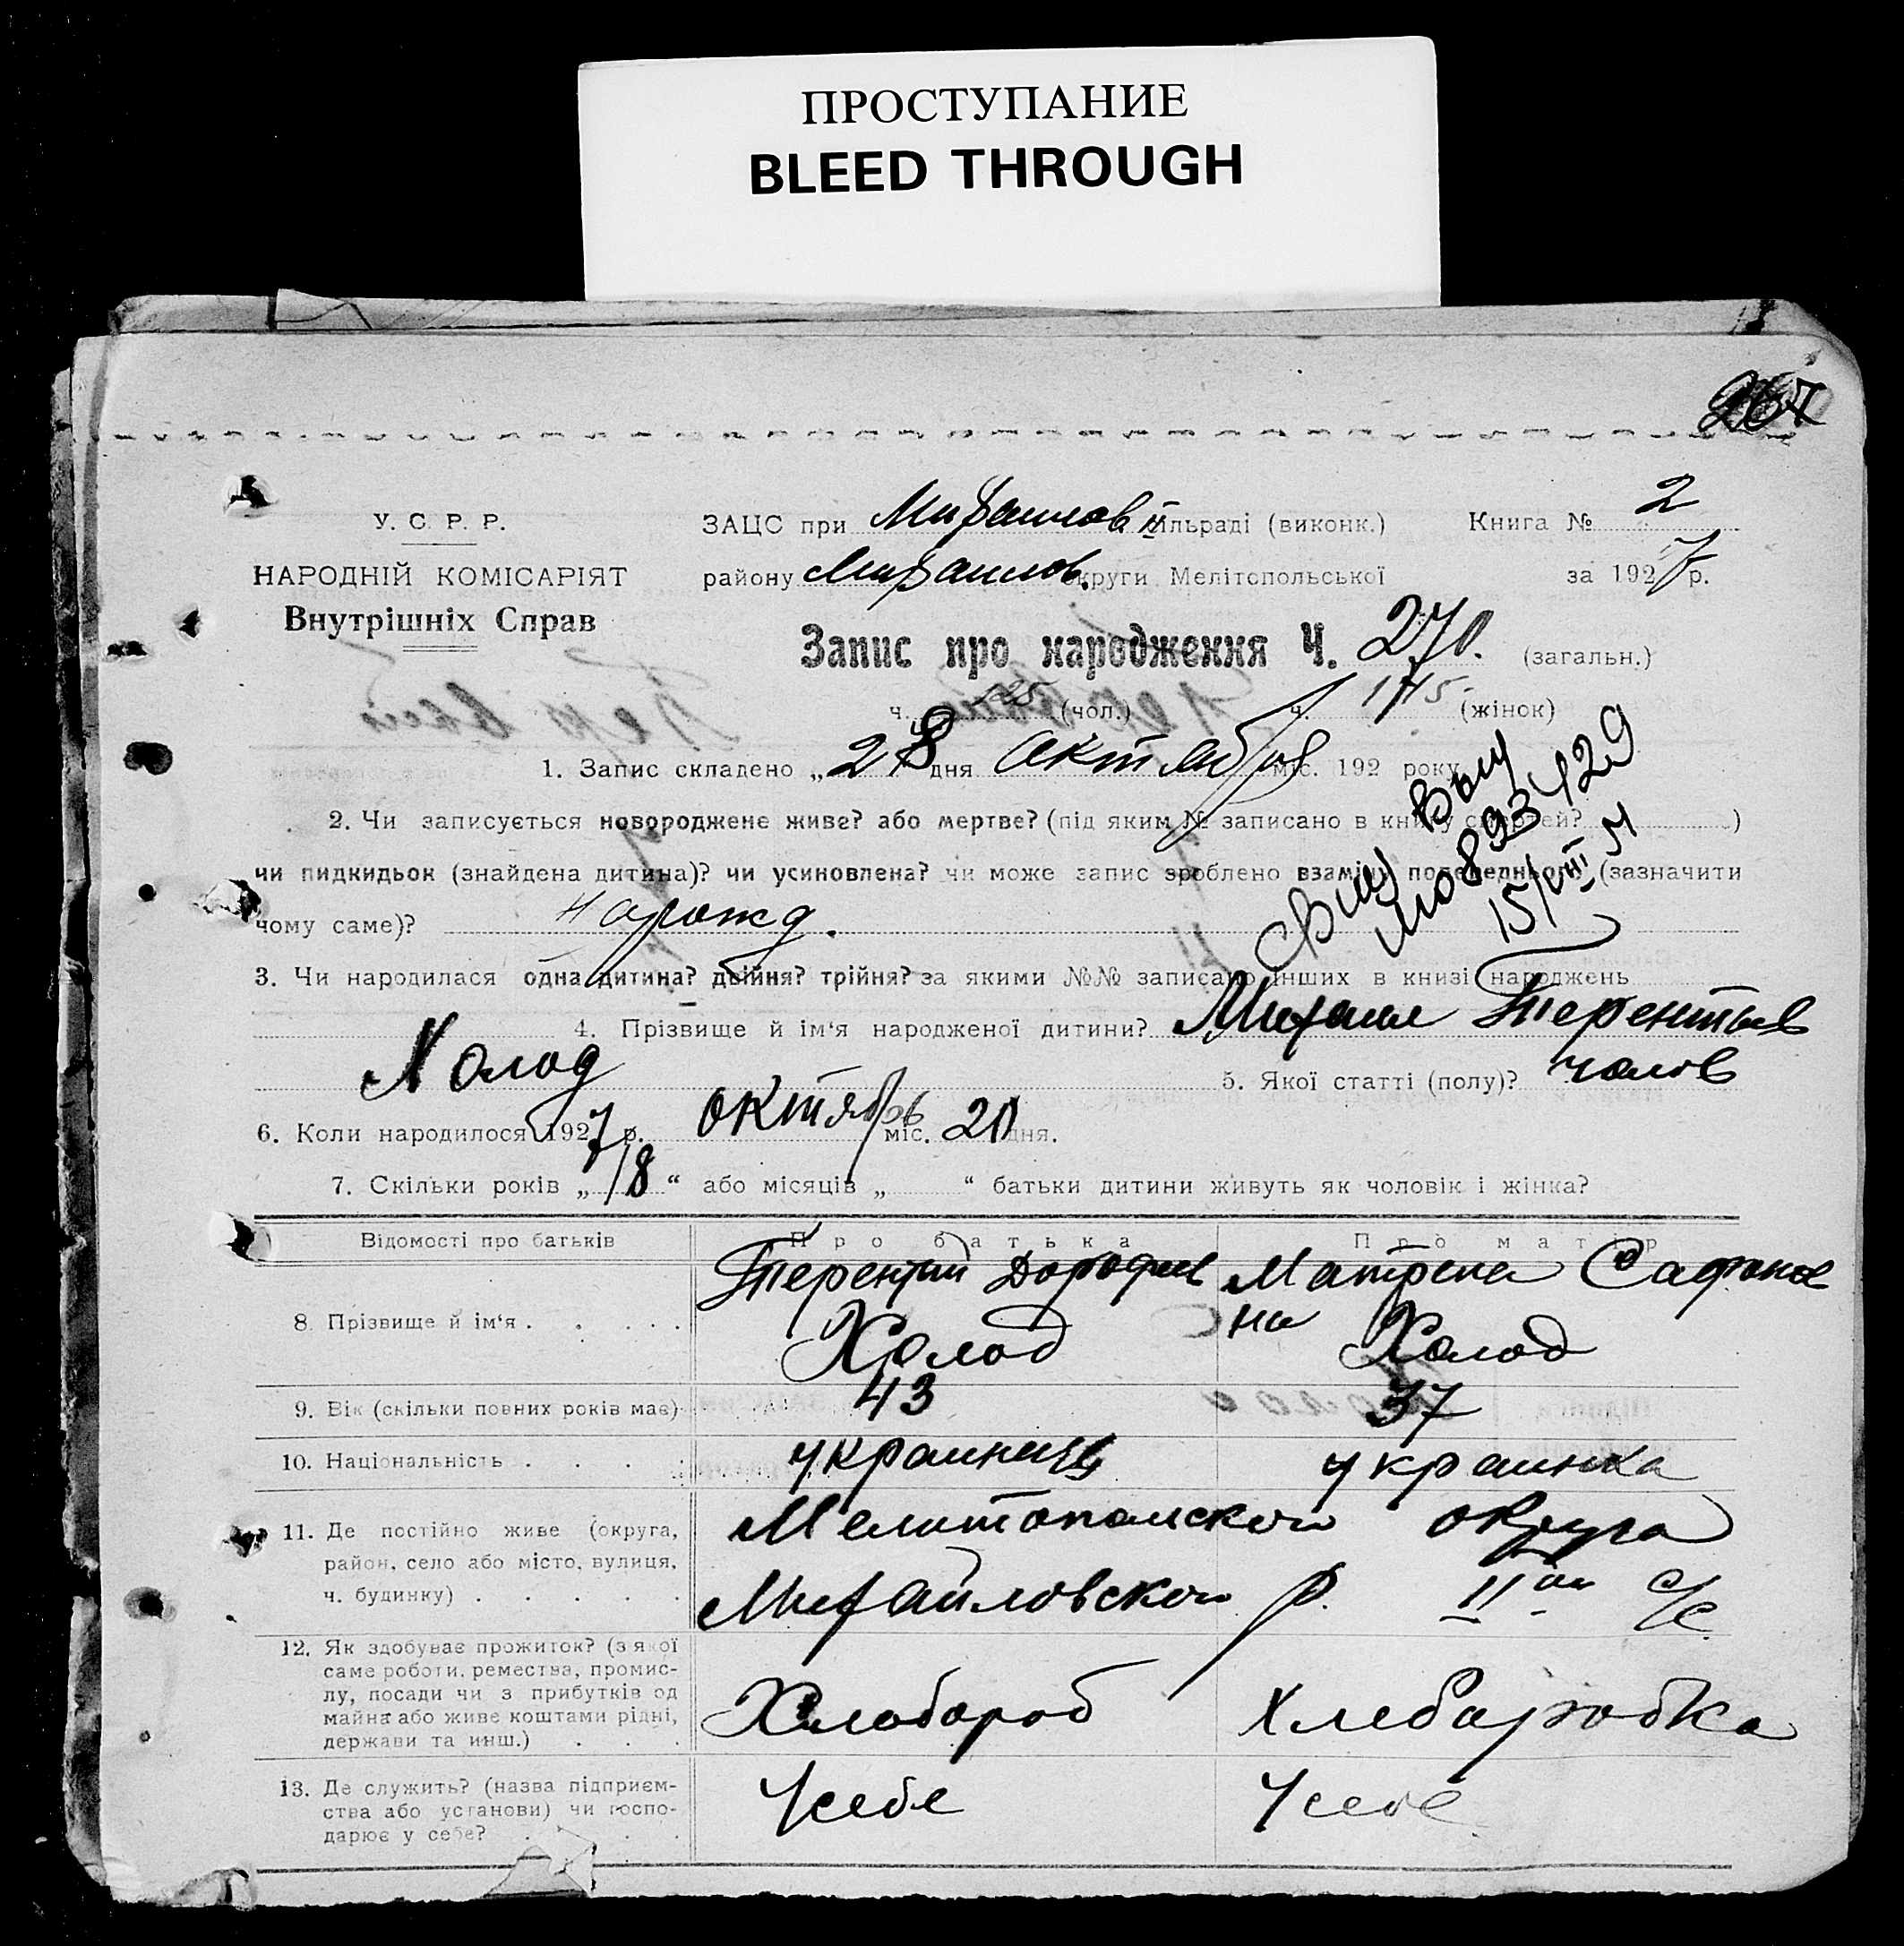 ПРОСТУПАНИЕ
BLEED THROUGH
267
У. С. Р. Р.
НАРОДНІЙ КОМІСАРІЯТ
Внутрішніх Справ
ЗАЦС при Михайлов II сільраді (виконк.) Книга № 2
району Михайлов. округи Мелітопольської за 1927 р.
Запис про народження Ч. 270. (загальн.)
ч. 125 (чол.) ч. 145 (жінок)
1. Запис складено „28 дня Октября міс. 192 року
2. Чи записується новороджене живе? або мертве? (під яким № записано в книгу смертей? )
чи пидкидьок (знайдена дитина)? чи усиновлена? чи може запис зроблено взамін попереднього (зазначити
чому саме)? Нарожд.
3. Чи народилася одна дитина? двійня? трійня? за якими №№ записано інших в книзі народжень
4. Прізвище й ім'я народженої дитини? Михаил Терентьев
Холод 5. Якої статті (полу)? чолов
6. Коли народилося 1927 р. октября міс. 20 дня.
7. Скільки років „18“ або місяців „ “ батьки дитини живуть як чоловік і жінка?
Свид Выд
ЦЮ 893429
15/VIII
Відомості про батьків Про батька Про матір
8. Прізвище й ім'я . . . . . Терентий Дорофеев Холод Матрена Сафоновна Холод
9. Вік (скільки повних років має) 43 37
10. Національність . . . . украинець украинка
11. Де постійно живе (округа, Мелитопольской округа
район, село або місто, вулиця,
ч. будинку) . . . . . Михайловской р. II ой с/с.
12. Як здобуває прожиток? (з якої
саме роботи, ремества, промис-
лу, посади чи з прибутків од
майна або живе коштами рідні,
держави та инш.) . . . Хлебороб Хлеборобка
13. Де служить? (назва підприєм-
ства або установи) чи госпо-
дарює у себе? . . . . У себе У себе